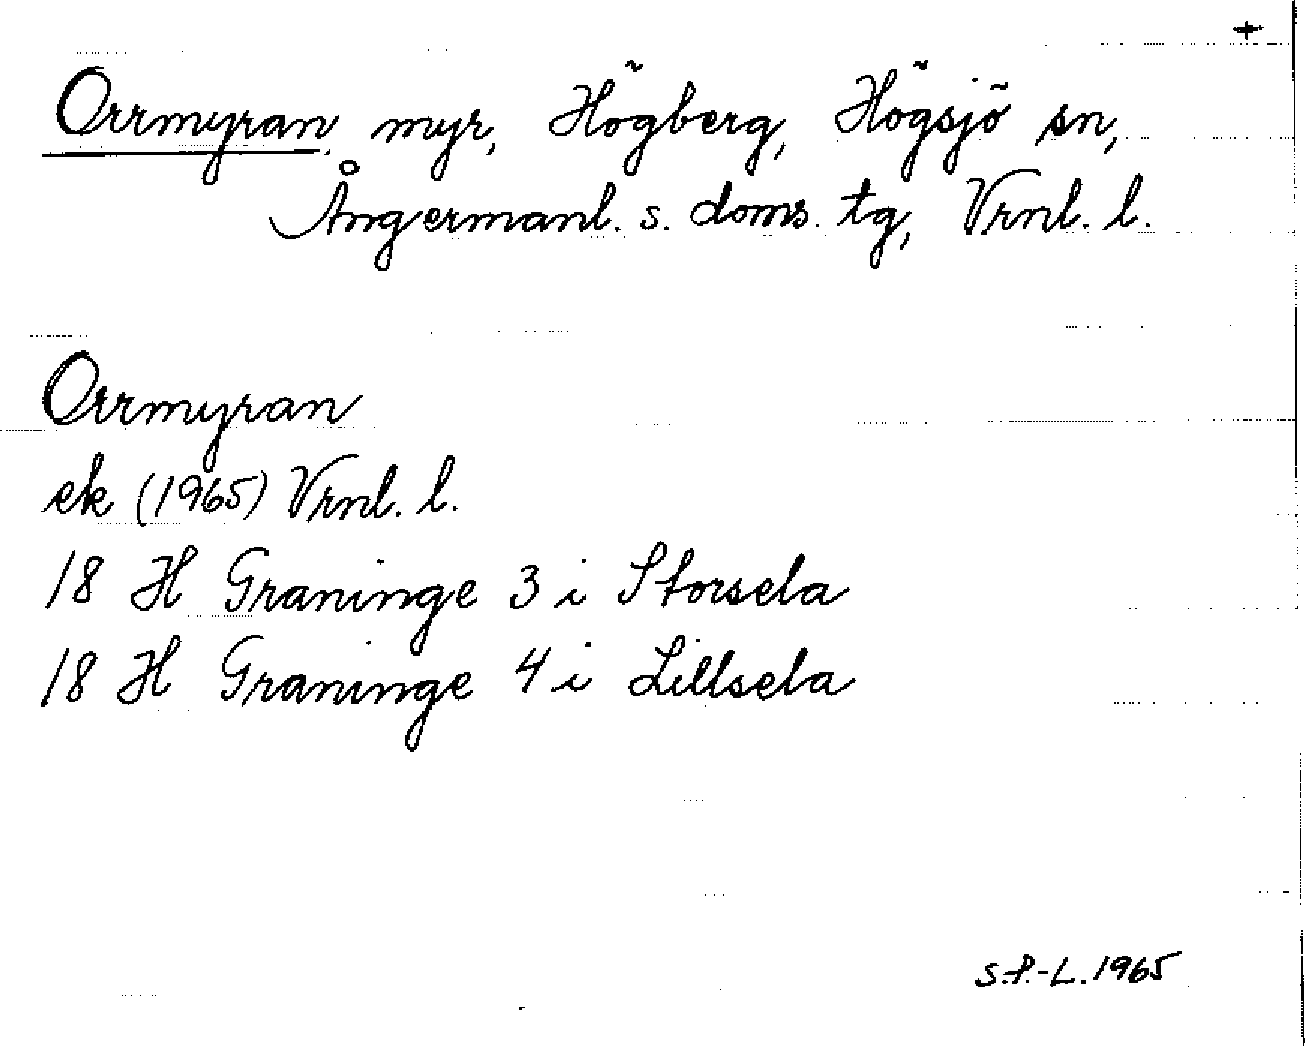 +
Orrmyran myr, Högberg, Högsjö sn,
Ångermanl. s. doms. tg, Vrnl. l.
Orrmyran
ek (1965) Vrnl. l.
18 H Graninge 3 i Storsela
18 H Graninge 4 i Lillsela
S.P.-L. 1965